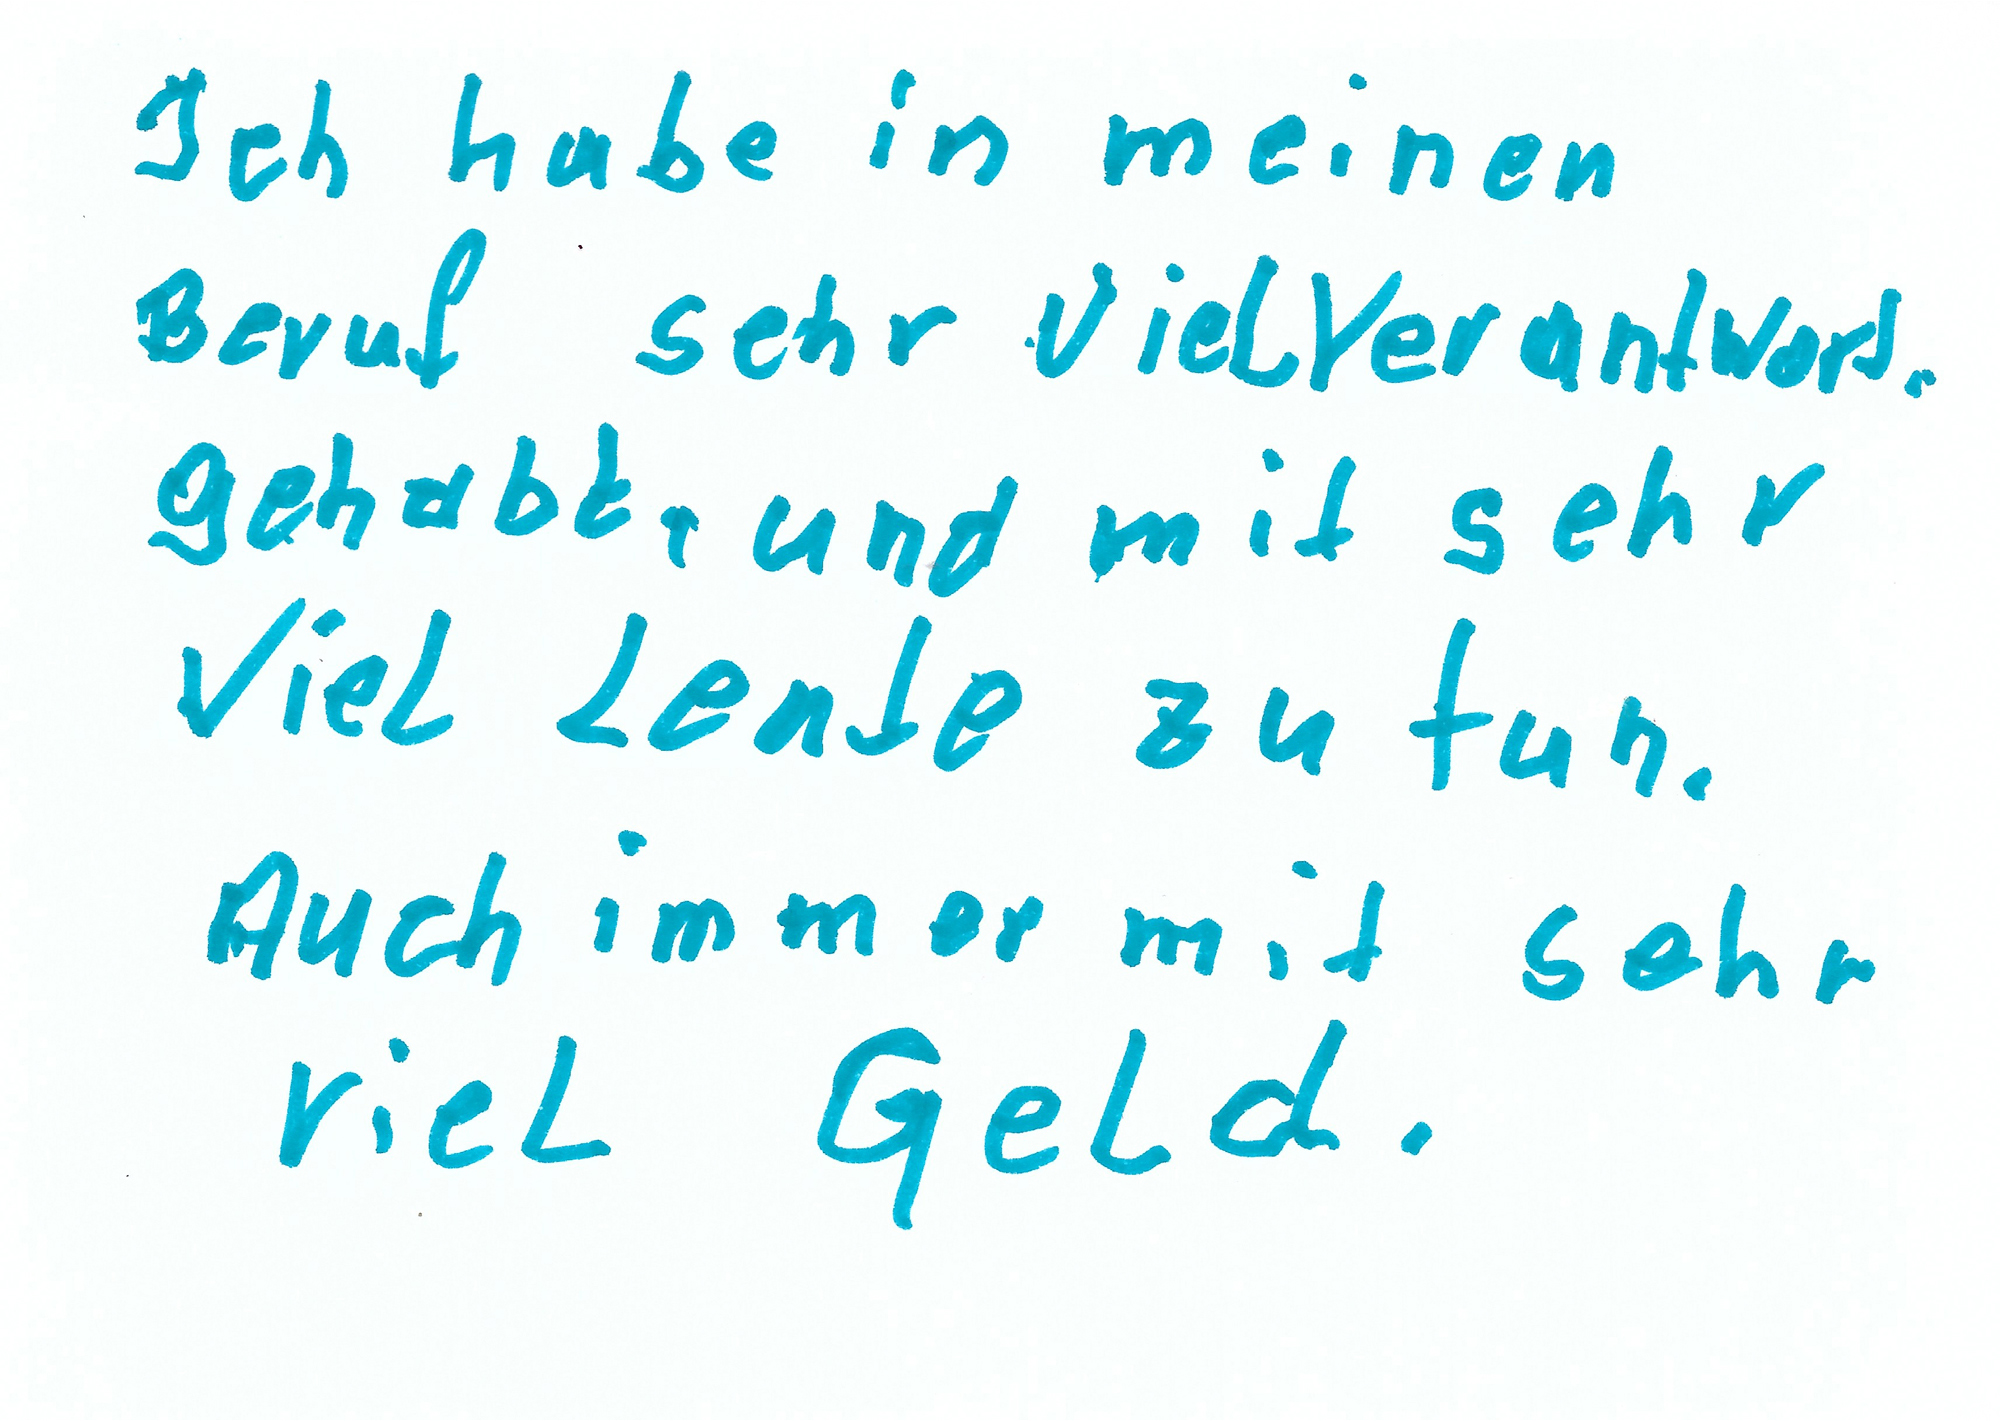 Ich habe in meinen
Beruf sehr viel Verantwort.
gehabt, und mit sehr
viel Leute zu tun.
Auch immer mit sehr
viel Geld.